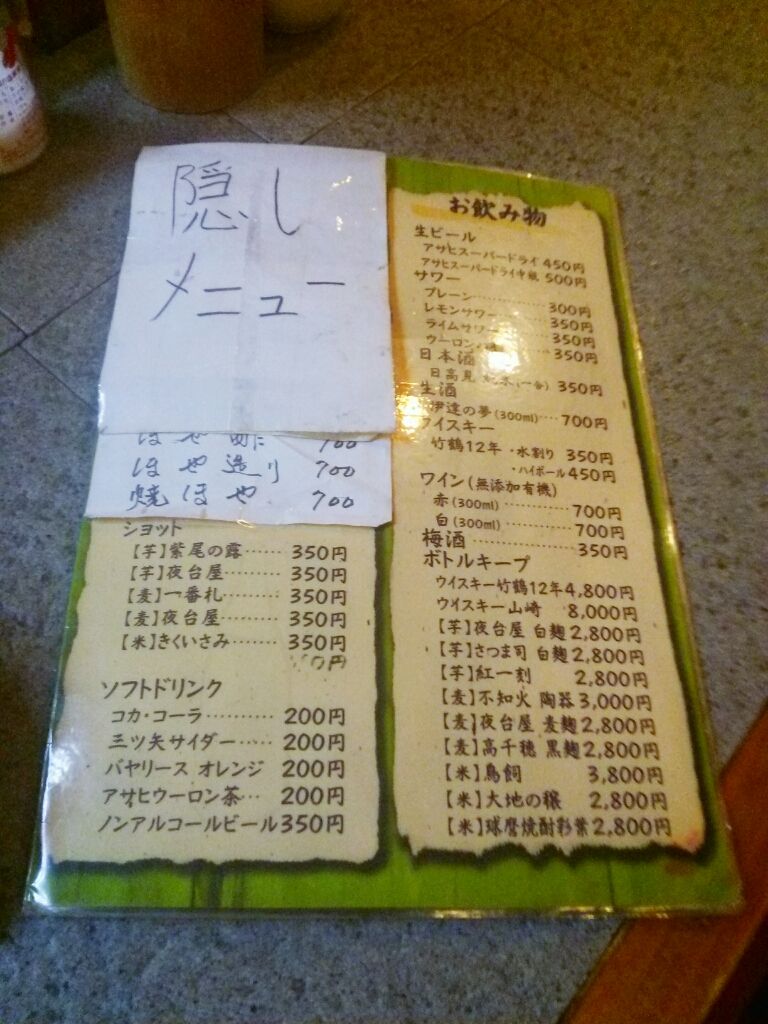 隠し
メニュー
ほや酢 700
ほや造り 700
焼ほや 700
ショット
【芋】紫尾の露…… 350円
【芋】夜台屋……… 350円
【麦】一番札……… 350円
【麦】夜台屋……… 350円
【米】きくいさみ…… 350円
ソフトドリンク
コカ・コーラ……… 200円
三ツ矢サイダー…… 200円
バヤリース オレンジ 200円
アサヒウーロン茶… 200円
ノンアルコールビール350円
お飲み物
生ビール
アサヒスーパードライ 450円
アサヒスーパードライ中瓶 500円
サワー
プレーン……… 300円
レモンサワー 350円
ライムサワー 350円
ウーロン 350円
日本酒
日高見 (一合) 350円
生酒
伊達の夢(300ml)… 700円
ウイスキー
竹鶴12年 ・水割り 350円
・ハイボール450円
ワイン(無添加有機)
赤(300ml)……… 700円
白(300ml)……… 700円
梅酒……… 350円
ボトルキープ
ウイスキー竹鶴12年4,800円
ウイスキー山崎 8,000円
【芋】夜台屋 白麹2,800円
【芋】さつま司 白麹2,800円
【芋】紅一刻 2,800円
【麦】不知火 陶器3,000円
【麦】夜台屋 麦麹2,800円
【麦】高千穂 黒麹2,800円
【米】鳥飼 3,800円
【米】大地の穣 2,800円
【米】球磨焼酎彩葉2,800円